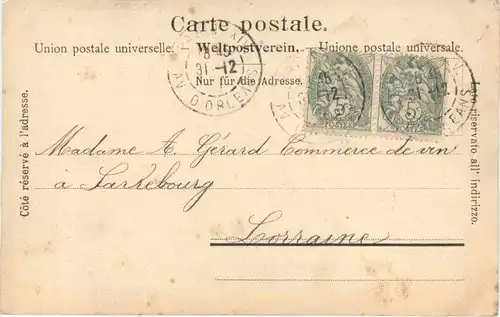 Carte postale.
Union postale universelle. Weltpostverein. Unione postale universale.
Nur für die Adresse.
8 40
31-12
AV. D'ORLEANS
5
5
Côté réservé à l'adresse.
Lato riservato all' Indirizzo.
Madame A. Gérard Commerce de vin
à Sarrebourg
Lorraine